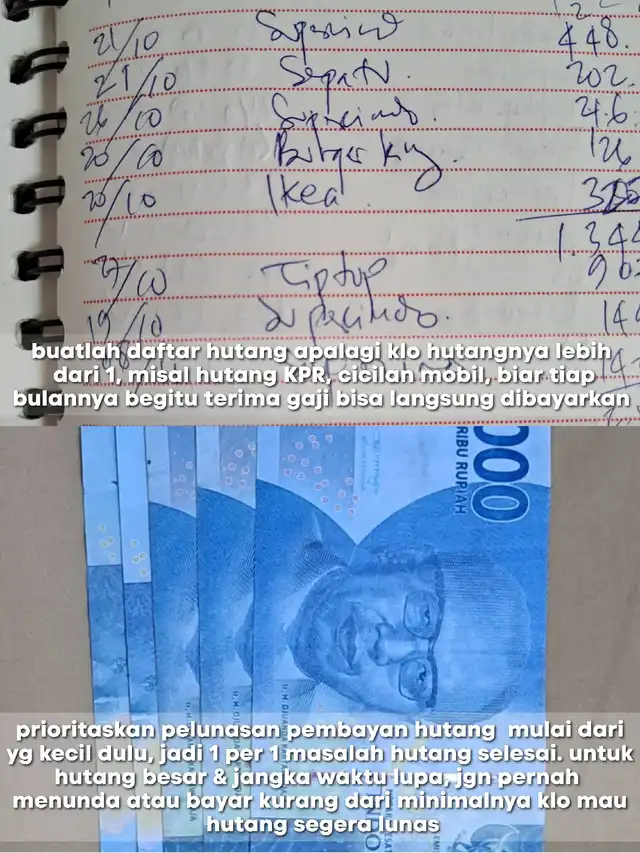 21/10 Superind 448.
21/10 Sepatu. 202.
26/10 Superindo. 246.
20/10 Burger King. 126
20/10 Ikea
1.344
Tiptop
19/10 Superindo.
buatlah daftar hutang apalagi klo hutangnya lebih
dari 1, misal hutang KPR, cicilan mobil, biar tiap
bulannya begitu terima gaji bisa langsung dibayarkan
000
RIBU RUPIAH
prioritaskan pelunasan pembayan hutang mulai dari
yg kecil dulu, jadi 1 per 1 masalah hutang selesai. untuk
hutang besar & jangka waktu lupa, jgn pernah
menunda atau bayar kurang dari minimalnya klo mau
hutang segera lunas